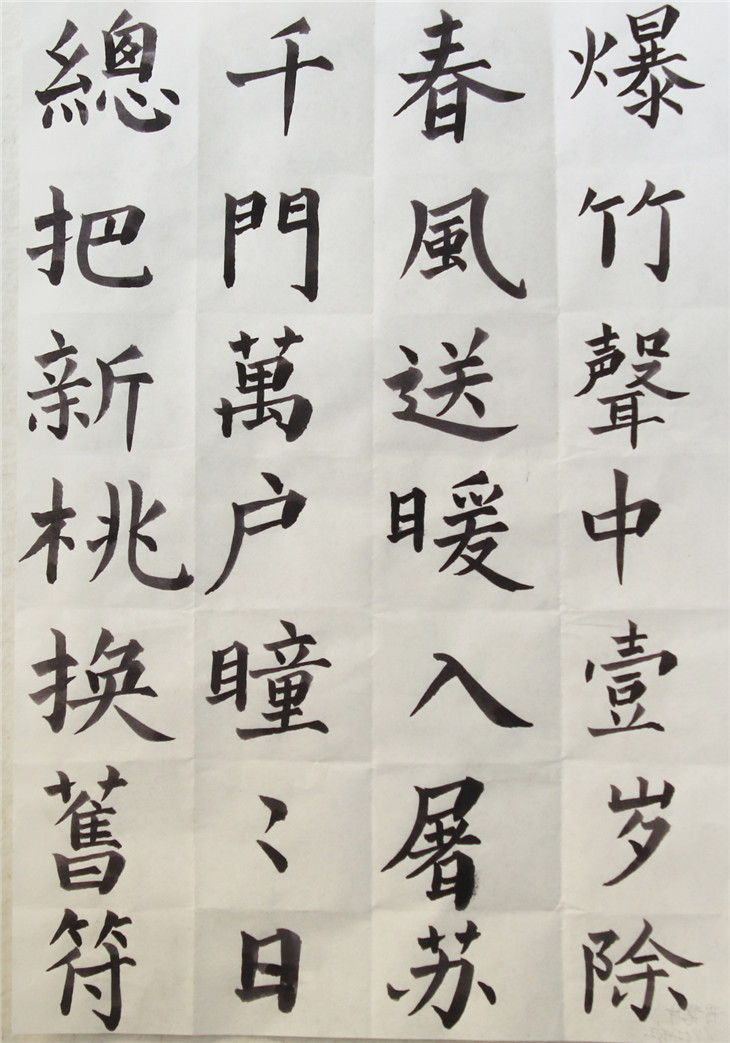 爆竹聲中壹岁除
春風送暖入屠苏
千門萬户瞳〻日
總把新桃换舊符